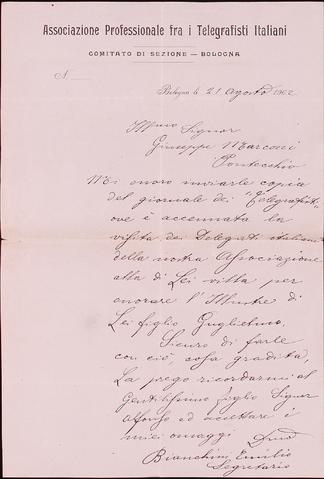 Associazione Professionale fra i Telegrafisti Italiani
COMITATO DI SEZIONE — BOLOGNA
N
Bologna li 21 Agosto 1902
Illmo Signor
Giuseppe Marconi
Pontecchio
Mi onoro inviarle copia
del giornale dei "Telegrafisti"
ove è accennata la
visita dei Delegati italiani
della nostra Associazione
alla di Lei villa per
onorare l'Illustre di
Lei figlio Guglielmo.
Sicuro di farle
con ciò, cosa gradita,
La prego ricordarmi al
Gentilissimo figlio Signor
Alfonso ed accettare i
miei omaggi
Bianchini Emilio
Segretario